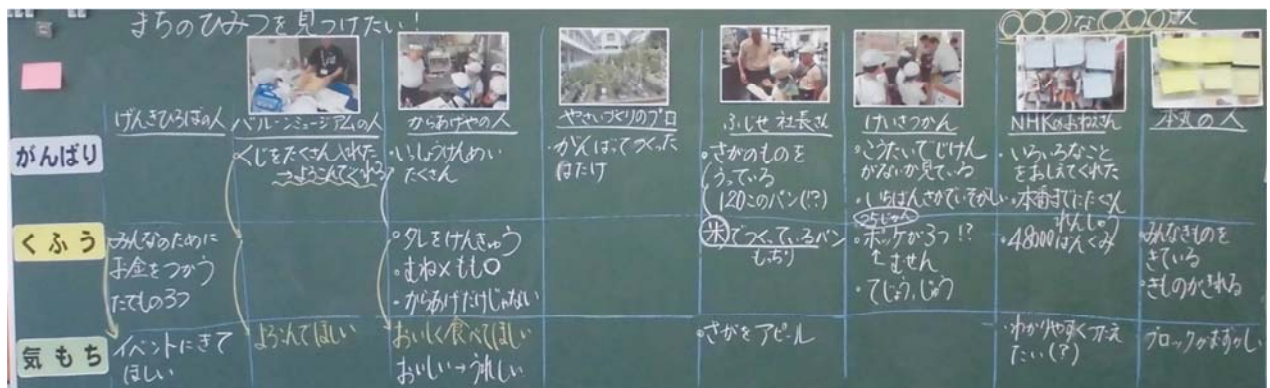 まちのひみつを見つけたい！
○○○な○○○さん
げんきひろばの人
バルーンミュージアムの人
からあげやの人
やさいづくりのプロ
ふじせ 社長さん
けいさつかん
NHKのおねえさん
本丸の人
がんばり
・くじをたくさん入れた
→よろこんでくれる
・いっしょうけんめい
たくさん
・がんばってつくった
はたけ
・さがのものを
うっている
120このパン(!?)
・こうたいでじけん
がないか見ている
・いちばんさがでいそがしい
・いろいろなこと
をおしえてくれた
・本番までにたくさん
れんしゅう
くふう
みんなのために
お金をつかう
たてもの3つ
・タレをけんきゅう
・むね×もも○
・からあげだけじゃない
米でつくっているパン
もっちり
25じかん
・ポッケが3つ!?
↑むせん
・てじょう、じゅう
・48000ばんぐみ
・みんなきものを
きている
・きものがきれる
気もち
イベントにきて
ほしい
よろこんでほしい
おいしく食べてほしい
おいしい→うれしい
・さがをアピール
・わかりやすくつたえ
たい(?)
ブロックがむずかしい